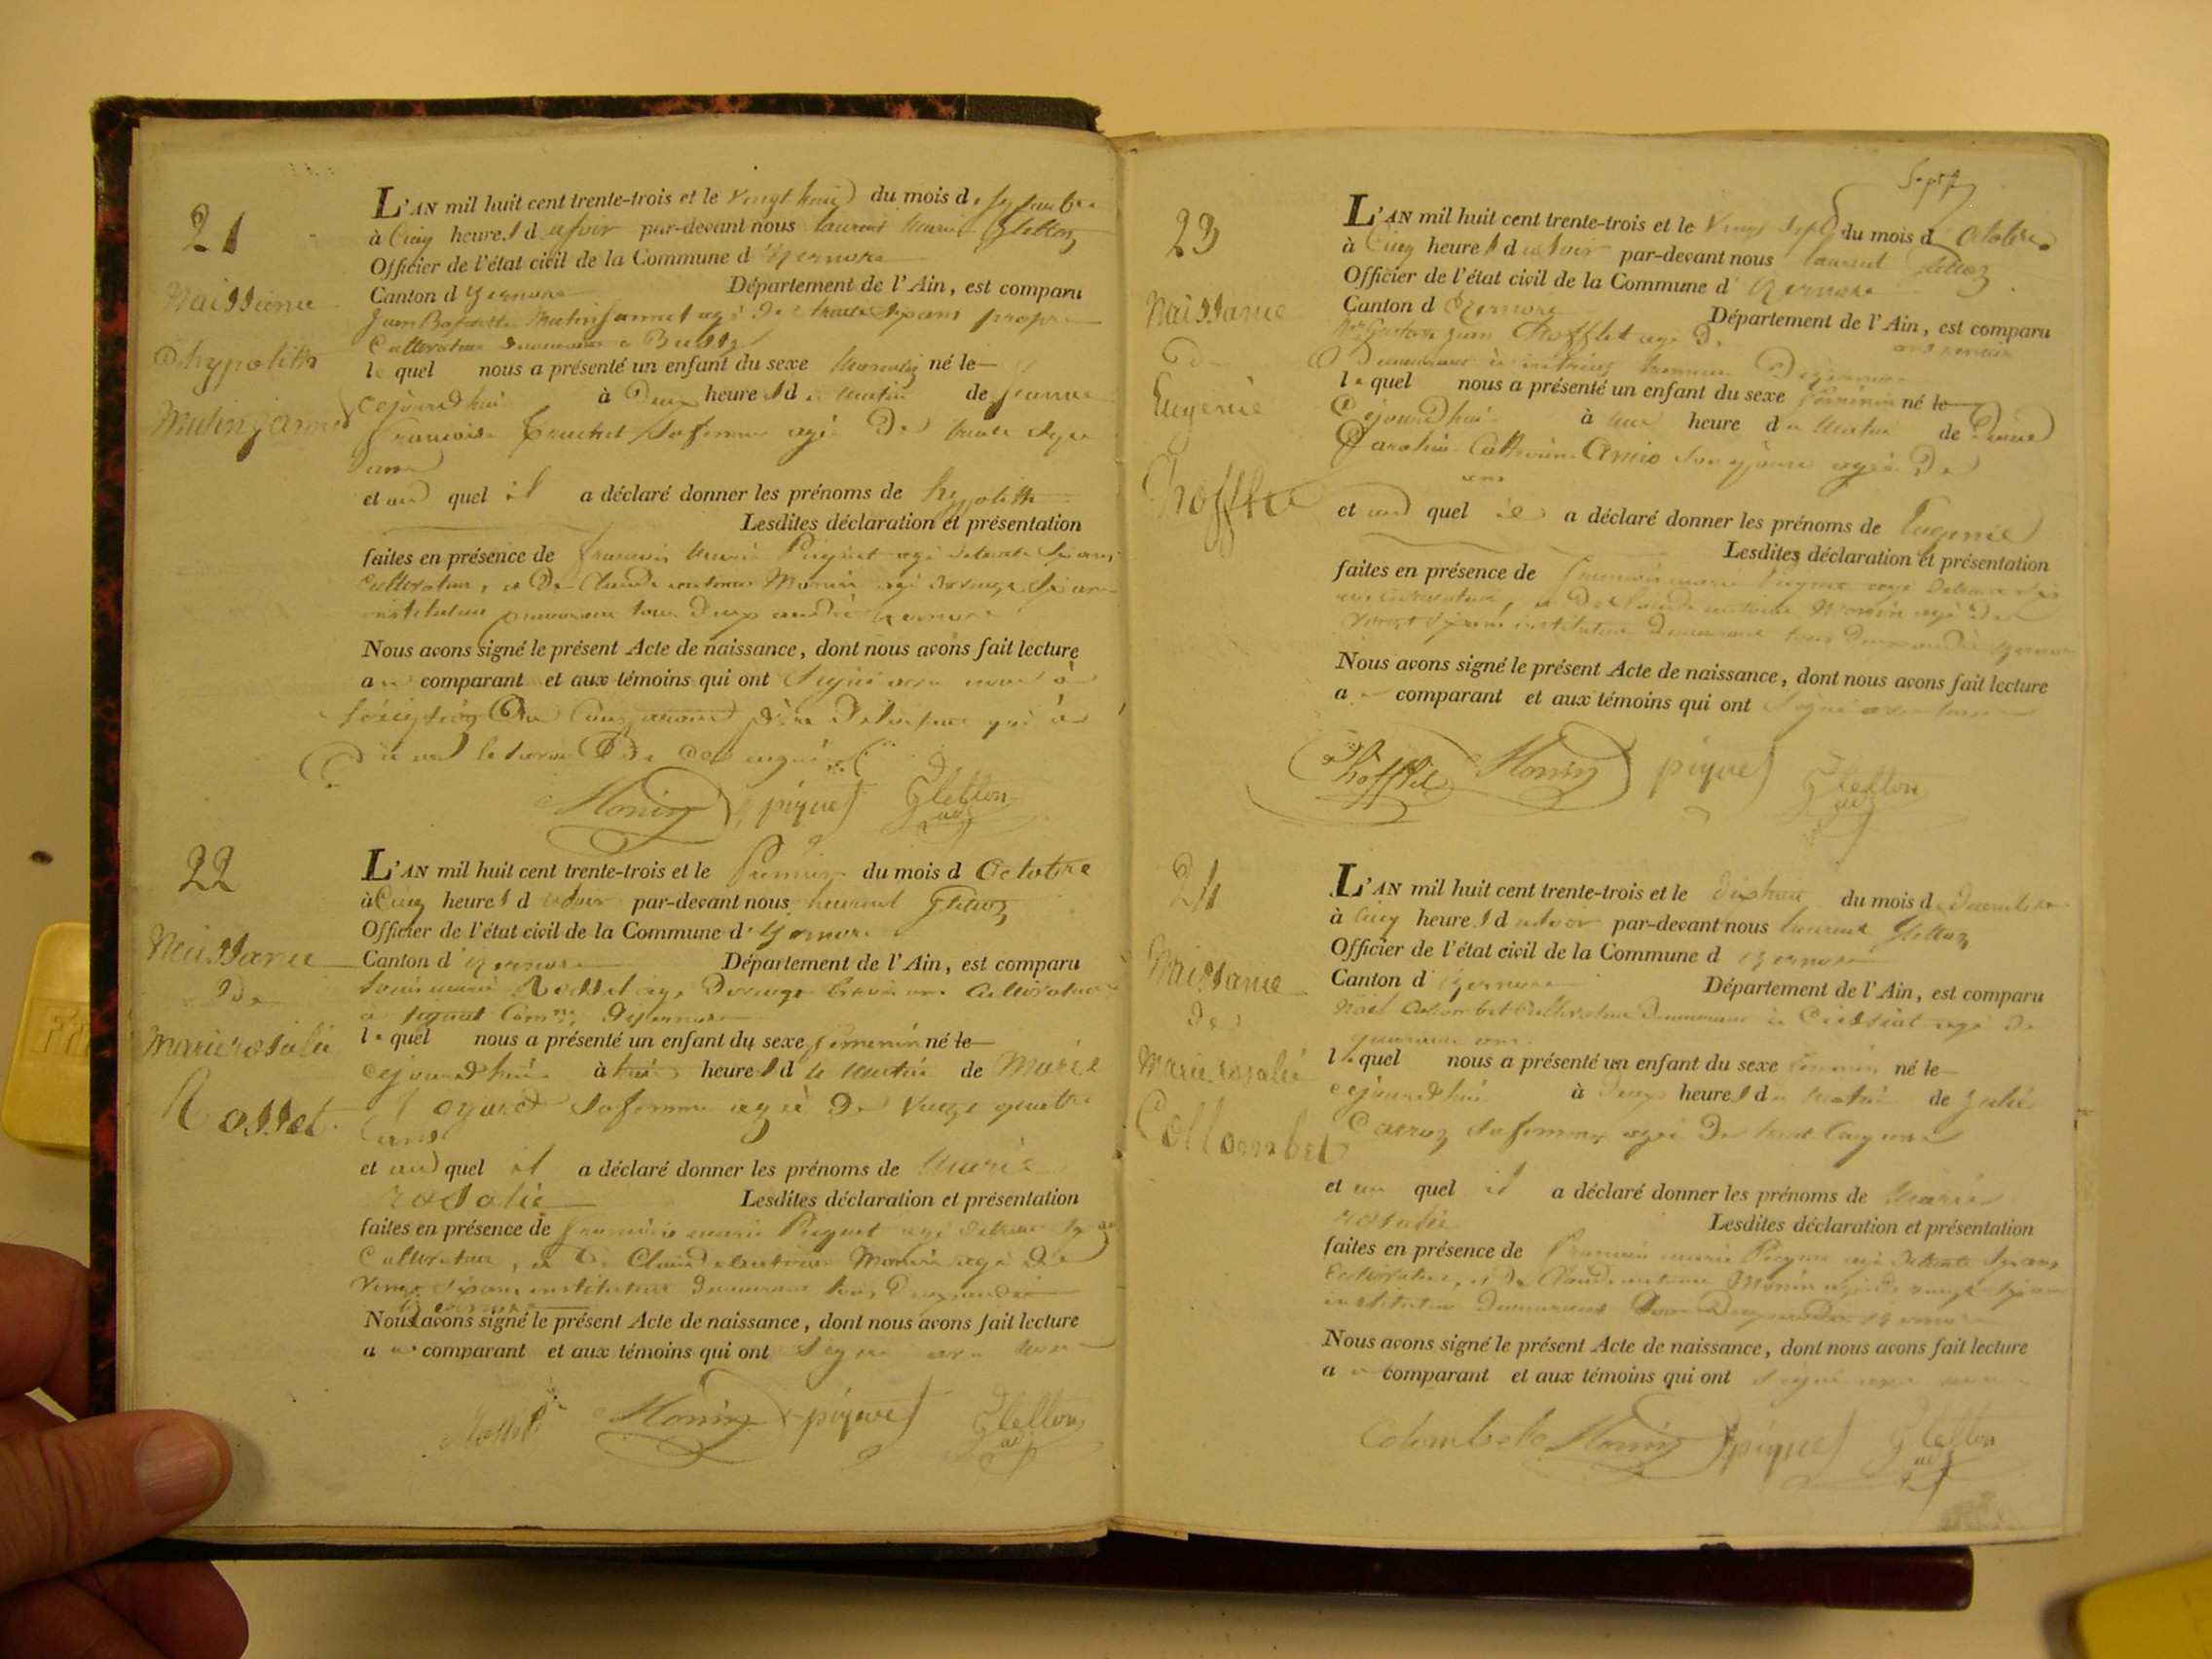 21
Naissance
d'hypolith
L'AN mil huit cent trente-trois et le Vingt huit du mois de Septembre
à Cinq heures du soir par-devant nous laurent Marie Gletton
Officier de l'état civil de la Commune d'Izernore
Canton d'Izernore Département de l'Ain, est comparu
Jean Baptiste agé de trente ans
Cultivateur
lequel nous a présenté un enfant du sexe Masculin né le
cejourdhui à Deux heures du matin de Jeanne
francoise sa femme agée De trente
ans
et au quel il a déclaré donner les prénoms de hypolith
Lesdites déclaration et présentation
faites en présence de francois Marie Piquet agé de trente six ans
Cultivateur, et De Claude antoine Monin agé de vingt six ans
instituteur demeurant tous deux audit izernore
Nous avons signé le présent Acte de naissance, dont nous avons fait lecture
au comparant et aux témoins qui ont Signé avec nous à
l'exception Du Comparant père De l'enfant qui a
Monin piquet Gletton
22
Naissance
De
Marie rosalie
Rosset
L'AN mil huit cent trente-trois et le Premier du mois d Octobre
à Cinq heures du soir par-devant nous laurent Gletton
Officier de l'état civil de la Commune d'Izernore
Canton d'izernore Département de l'Ain, est comparu
Rosset agé De vingt ans Cultivateur
a Comne D'izernore
lequel nous a présenté un enfant du sexe féminin né le
cejourdhui à heures du Matin de Marie
sa femme agée De Vingt quatre
ans
et au quel il a déclaré donner les prénoms de Marie
rosalie Lesdites déclaration et présentation
faites en présence de francois marie Piquet agé de trente six ans
Cultivateur, et De Claude antoine Monin agé De
Vingt six ans instituteur demeurant tous Deux audit
izernore
Nous avons signé le présent Acte de naissance, dont nous avons fait lecture
au comparant et aux témoins qui ont Signé avec nous
Rosset Monin piquet Gletton
23
Naissance
De
Eugenie
L'AN mil huit cent trente-trois et le Vingt Sept du mois d Octobre
à Cinq heures du soir par-devant nous laurent Gletton
Officier de l'état civil de la Commune d'Izernore
Canton d'Izernore Département de l'Ain, est comparu
agé De
lequel nous a présenté un enfant du sexe féminin né le
Cejourdhui à une heure du Matin de Dame
Catherine son épouse agée De
ans
et au quel il a déclaré donner les prénoms de Eugenie
Lesdites déclaration et présentation
faites en présence de francois marie Piquet agé de trente six
ans Cultivateur, et De Claude antoine Monin agé De
Vingt six ans instituteur Demeurant tous Deux audit izernore
Nous avons signé le présent Acte de naissance, dont nous avons fait lecture
au comparant et aux témoins qui ont Signé avec nous
Monin piquet Gletton
24
Naissance
De
Marie rosalie
Collombet
L'AN mil huit cent trente-trois et le dix huit du mois de Decembre
à Cinq heures du soir par-devant nous laurent Gletton
Officier de l'état civil de la Commune d izernore
Canton d'izernore Département de l'Ain, est comparu
Collombet Cultivateur Demeurant à Ceissiat agé De
quarante ans
lequel nous a présenté un enfant du sexe féminin né le
cejourdhui à Deux heures du Matin de Julie
sa femme agée De trente Cinq ans
et au quel il a déclaré donner les prénoms de Marie
rosalie Lesdites déclaration et présentation
faites en présence de francois marie Piquet agé De trente six ans
Cultivateur, et De Claude antoine Monin agé de vingt six ans
instituteur Demeurant tous Deux audit izernore
Nous avons signé le présent Acte de naissance, dont nous avons fait lecture
au comparant et aux témoins qui ont Signé avec nous
Colombet Monin piquet Gletton